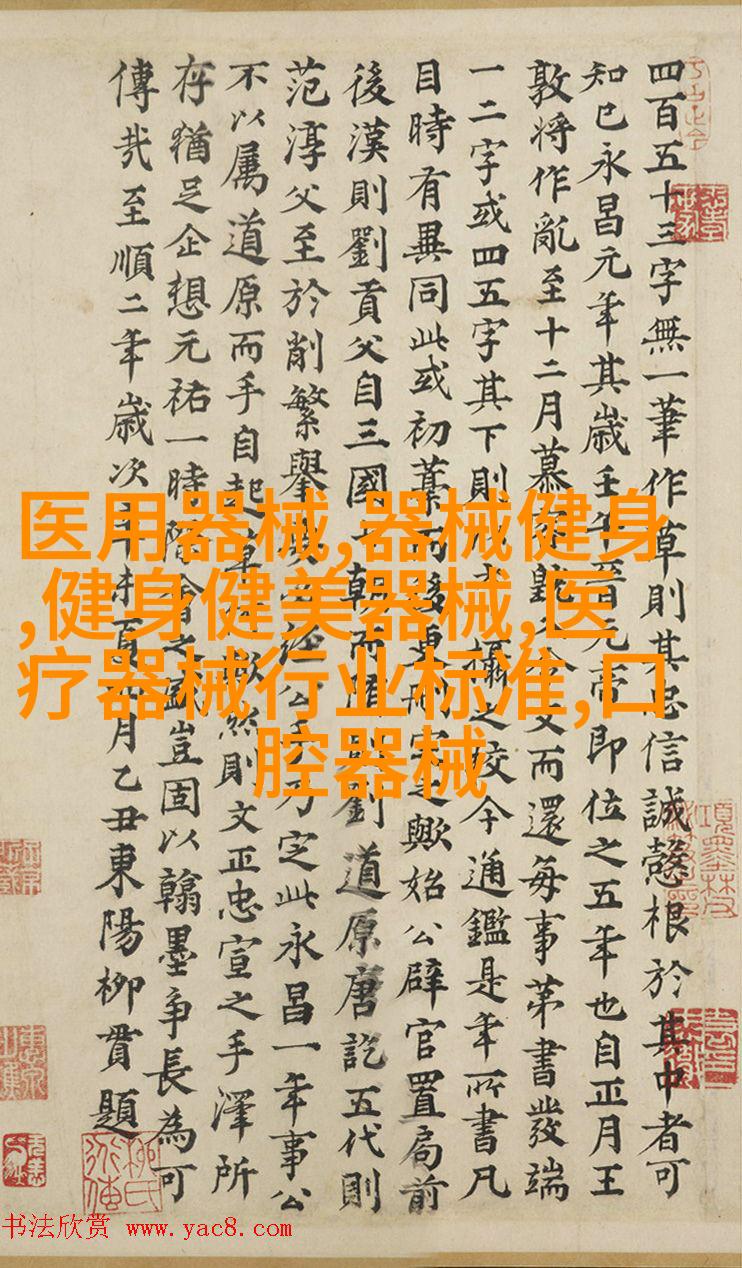 四百五十三字無一筆作草則其忠信誠慤根於其中者可
知已永昌元年其歲壬午晉元帝即位之五年也自正月王
敦將作亂至十二月慕容 令文而還每事第書發端
一二字或四五字其下則 攝之較今通鑑是年所書凡
目時有異同此或初藁而 更刪定之歟始公辟官置局前
後漢則劉貢父自三國 朝而隋則劉道原唐訖五代則
范淳父至於削繁舉 必經公手乃定此永昌一年事公
不以屬道原而手自起草 然則文正忠宣之手澤所
存猶足企想元祐一時 會之 豈固以翰墨爭長為可
傳哉至順二年歲次辛未夏 月乙丑東陽柳貫題
医用器械,器械健身
,健身健美器械,医
疗器械行业标准,口
腔器械
柳氏
书法欣赏 www.yac8.com